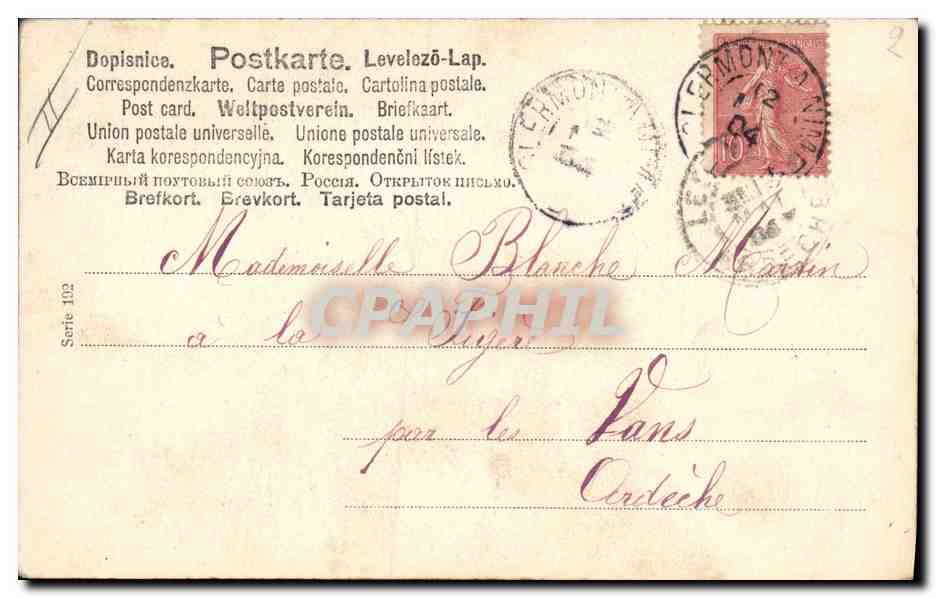 Dopisnice. Postkarte. Levelező-Lap.
Correspondenzkarte. Carte postale. Cartolina postale.
Post card. Weltpostverein. Briefkaart.
Union postale universelle. Unione postale universale.
Karta korespondencyjna. Korespondenční lístek.
Всемірный почтовый союзъ. Россія. Открытое письмо.
Brefkort. Brevkort. Tarjeta postal.
CLERMONT
CLERMONT A NIM
10
2
Mademoiselle Blanche Martin
à la
par les Vans
Ardèche
Serie 192
CPAPHIL